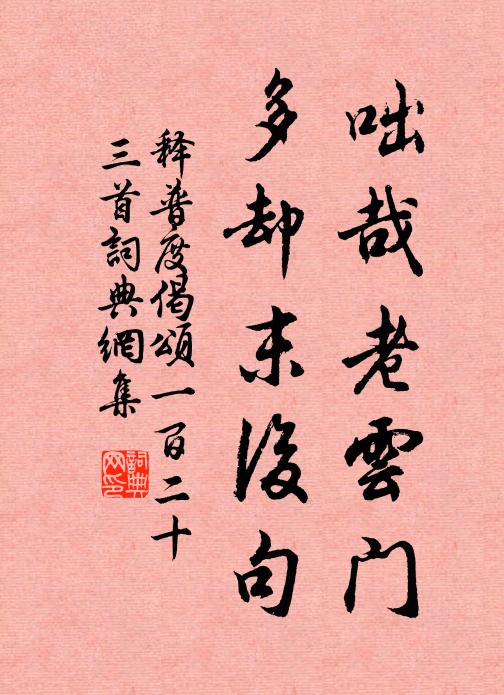 咄哉老雲门
多却末後句
释普度偈頌一百二十
三首詞典網集
詞典网印